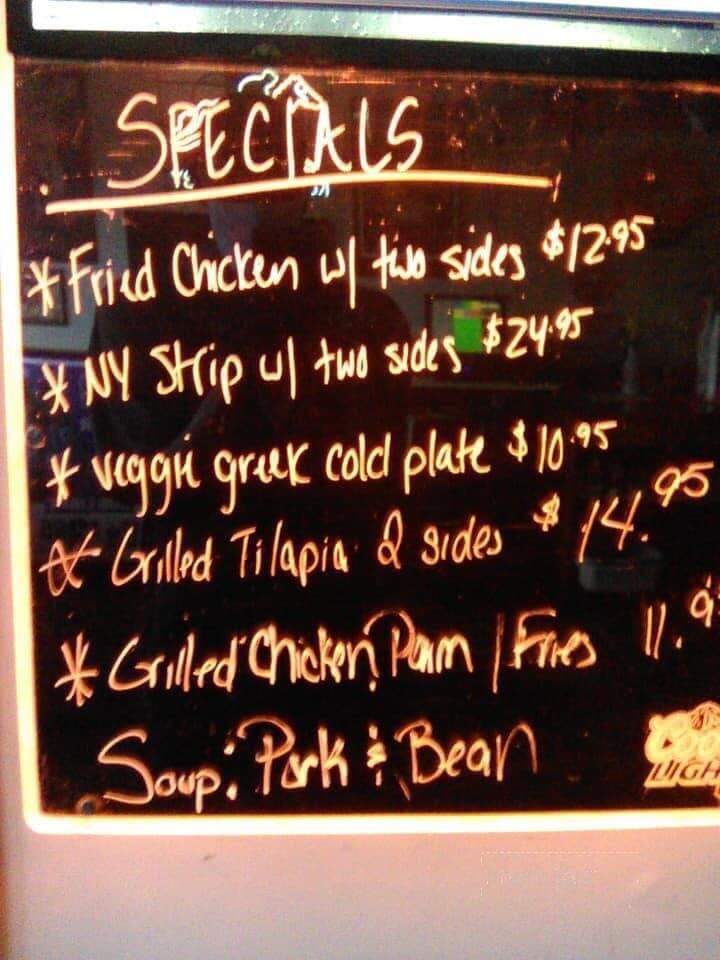 SPECIALS
* Fried Chicken w/ two sides $12.95
* NY Strip w/ two sides $24.95
* veggie greek cold plate $10.95
* Grilled Tilapia 2 sides $14.95
* Grilled Chicken Parm / Fries 11.9
Soup: Pork & Bean
Coo
LIGH